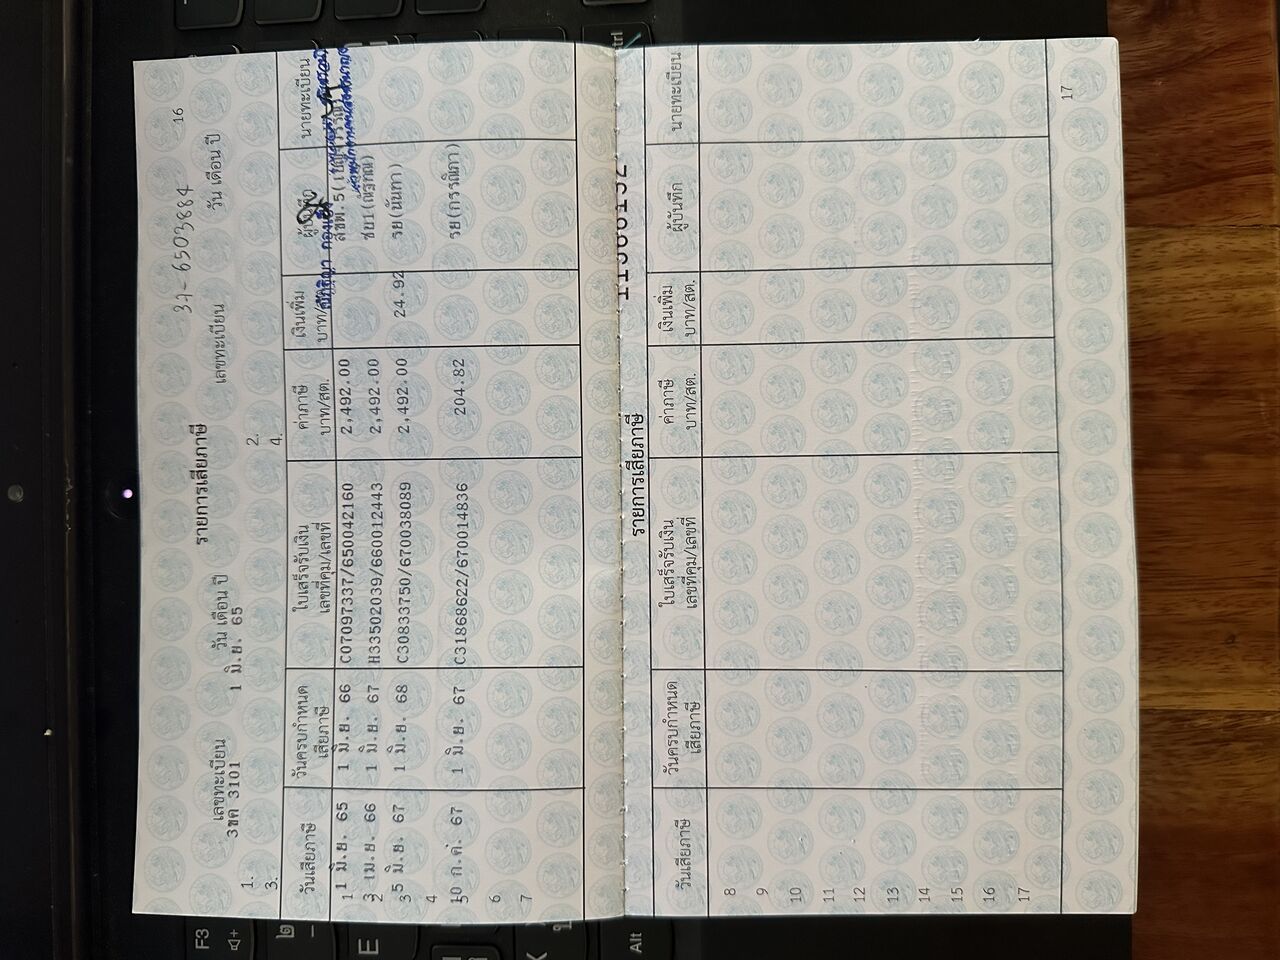 16
37-6503884
รายการเสียภาษี
เลขทะเบียน วัน เดือน ปี เลขทะเบียน วัน เดือน ปี
3ขค 3101 1 มิ.ย. 65
1. 2.
3. 4.
วันเสียภาษี วันครบกำหนด เสียภาษี ใบเสร็จรับเงิน เลขที่คุม/เลขที่ ค่าภาษี บาท/สต. เงินเพิ่ม บาท/สต. ผู้บันทึก นายทะเบียน
1 1 มิ.ย. 65 1 มิ.ย. 66 C07097337/650042160 2,492.00 สขพ.5
2 3 เม.ย. 66 1 มิ.ย. 67 H33502039/660012443 2,492.00 ชย1(ณัฐฑณ)
3 5 มิ.ย. 67 1 มิ.ย. 68 C30833750/670038089 2,492.00 24.92 รย(นันทา)
4
5 10 ก.ค. 67 1 มิ.ย. 67 C31868622/670014836 204.82 รย(กรรณิกา)
6
7
รายการเสียภาษี
วันเสียภาษี วันครบกำหนด เสียภาษี ใบเสร็จรับเงิน เลขที่คุม/เลขที่ ค่าภาษี บาท/สต. เงินเพิ่ม บาท/สต. ผู้บันทึก นายทะเบียน
8
9
10
11
12
13
14
15
16
17
17
F3
E
K
Alt